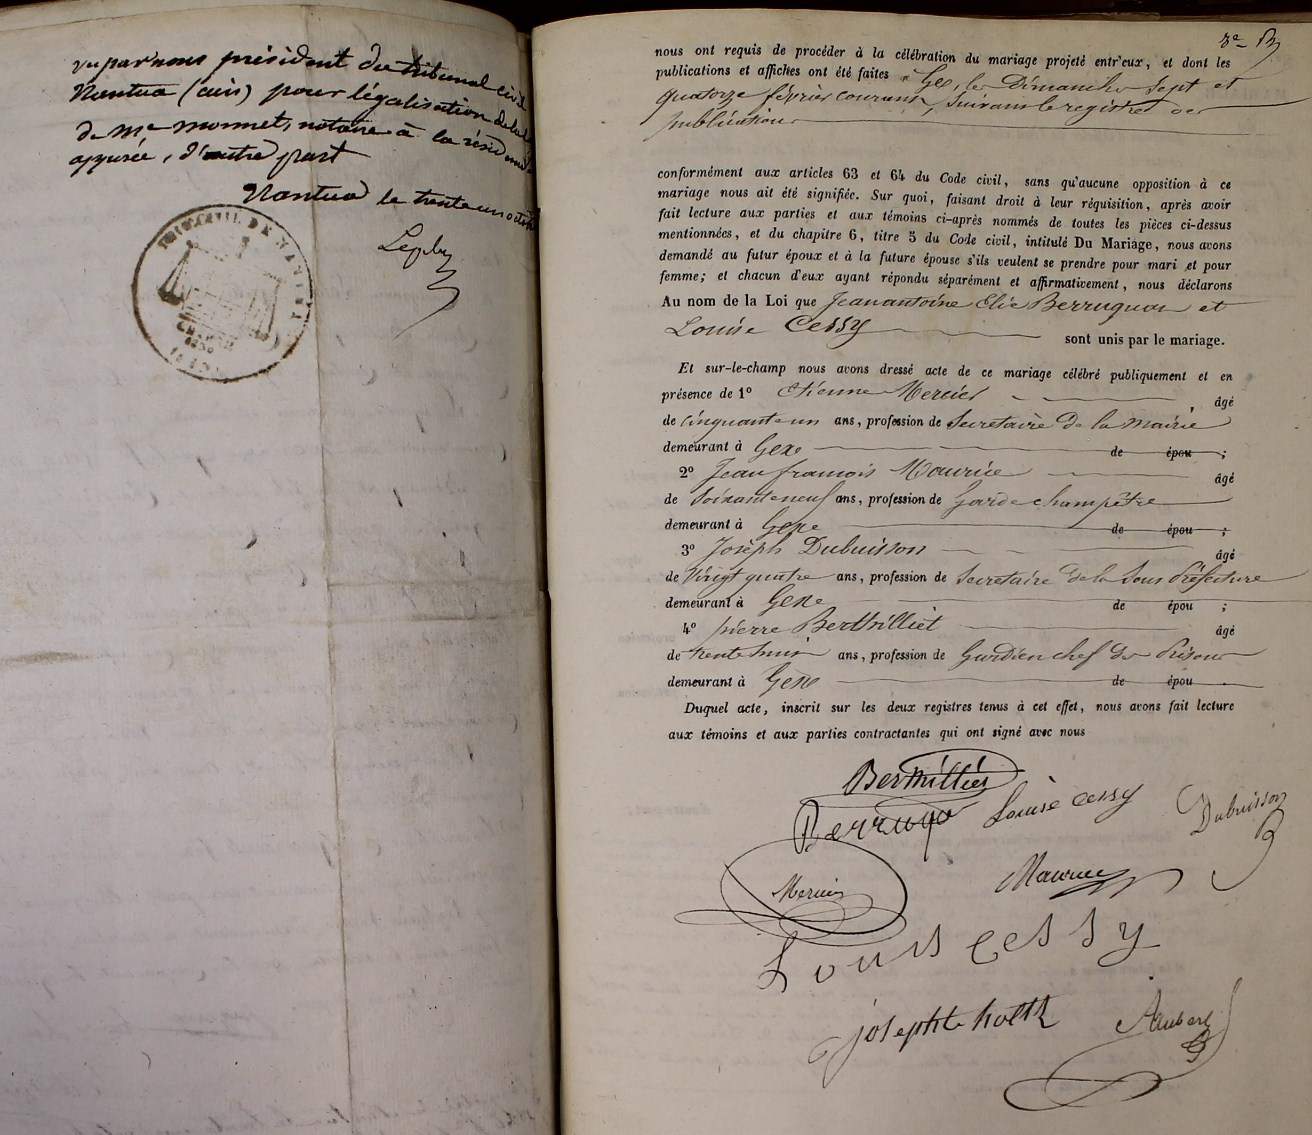 vu par nous président du tribunal civil
Nantua (ain) pour légalisation de la
de Me Monnet, notaire à la résidence
apposée, d'autre part
Nantua le trente un octob
TRIB. CIVIL DE NANTUA
2e B
nous ont requis de procéder à la célébration du mariage projeté entr'eux, et dont les
publications et affiches ont été faites à Gex, les Dimanches sept et
quatorze février courant, suivant le registre des
publications
conformément aux articles 63 et 64 du Code civil, sans qu'aucune opposition à ce
mariage nous ait été signifiée. Sur quoi, faisant droit à leur réquisition, après avoir
fait lecture aux parties et aux témoins ci-après nommés de toutes les pièces ci-dessus
mentionnées, et du chapitre 6, titre 5 du Code civil, intitulé Du Mariage, nous avons
demandé au futur époux et à la future épouse s'ils veulent se prendre pour mari et pour
femme; et chacun d'eux ayant répondu séparément et affirmativement, nous déclarons
Au nom de la Loi que Jean antoine Elie Berrugnon et
Louise Cessy sont unis par le mariage.
Et sur-le-champ nous avons dressé acte de ce mariage célébré publiquement et en
présence de 1° Etienne Mercier, âgé
de cinquante un ans, profession de Secrétaire de la mairie
demeurant à Gex de épou ;
2° Jean françois Maurice âgé
de Soixante neuf ans, profession de Garde champêtre
demeurant à Gex de épou ;
3° Joseph Dubuisson âgé
de Vingt quatre ans, profession de Secretaire de la Sous Préfecture
demeurant à Gex de épou ;
4° pierre Berthilliet âgé
de trente huit ans, profession de Gardien chef des Prisons
demeurant à Gex de épou
Duquel acte, inscrit sur les deux registres tenus à cet effet, nous avons fait lecture
aux témoins et aux parties contractantes qui ont signé avec nous
Berthilliet
Louise cessy
Dubuisson
Mercier
Maurice
Louis cessy
Joseph